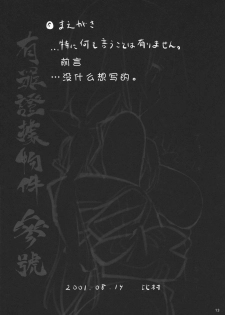 まえがき
...特に何も言うことは有りません。
前言
...没什么想写的。
有罪證據物件 參號
2001.08.17